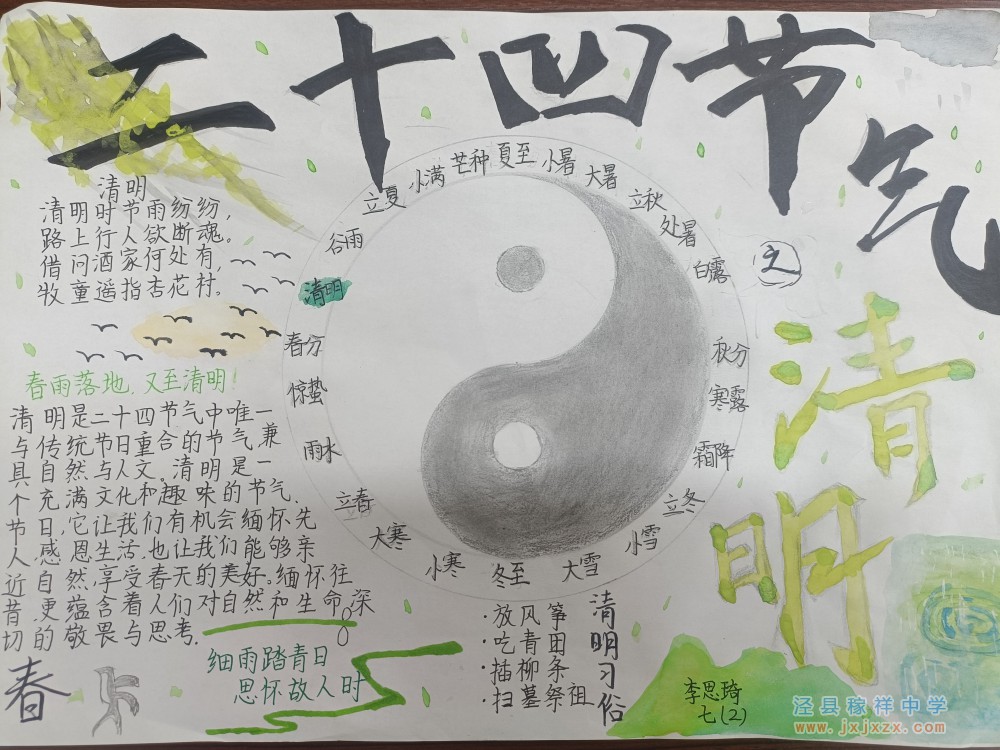 二十四节气
之
清明
清明
清明时节雨纷纷，
路上行人欲断魂。
借问酒家何处有，
牧童遥指杏花村。
春雨落地，又至清明！
清明是二十四节气中唯一
与传统节日重合的节气，兼
具自然与人文。清明是一
个充满文化和趣味的节气、
节日，它让我们有机会缅怀先
人、感恩生活，也让我们能够亲
近自然，享受春天的美好。缅怀往
昔，更蕴含着人们对自然和生命深
切的敬畏与思考。
春
细雨踏青日
思怀故人时
立夏
小满
芒种
夏至
小暑
大暑
立秋
处暑
白露
秋分
寒露
霜降
立冬
小雪
大雪
冬至
小寒
大寒
立春
雨水
惊蛰
春分
清明
谷雨
清明习俗
·放风筝
·吃青团
·插柳条
·扫墓祭祖
李思琦
七(2)
泾县稼祥中学
www.jxjxzx.com